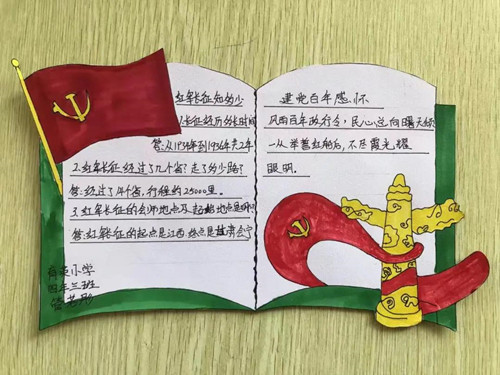 红军长征知多少
1.长征经历多长时间
答:从1934年到1936年共2年
2.红军长征经过了几个省?走了多少路?
答:经过了14个省,行程约25000里。
3.红军长征的会师地点及起始地点是
答:红军长征的起点是江西,终点是甘肃会宁
小学
四年三班
建党百年感怀
风雨百年政行令,民心
一从举
眼明。